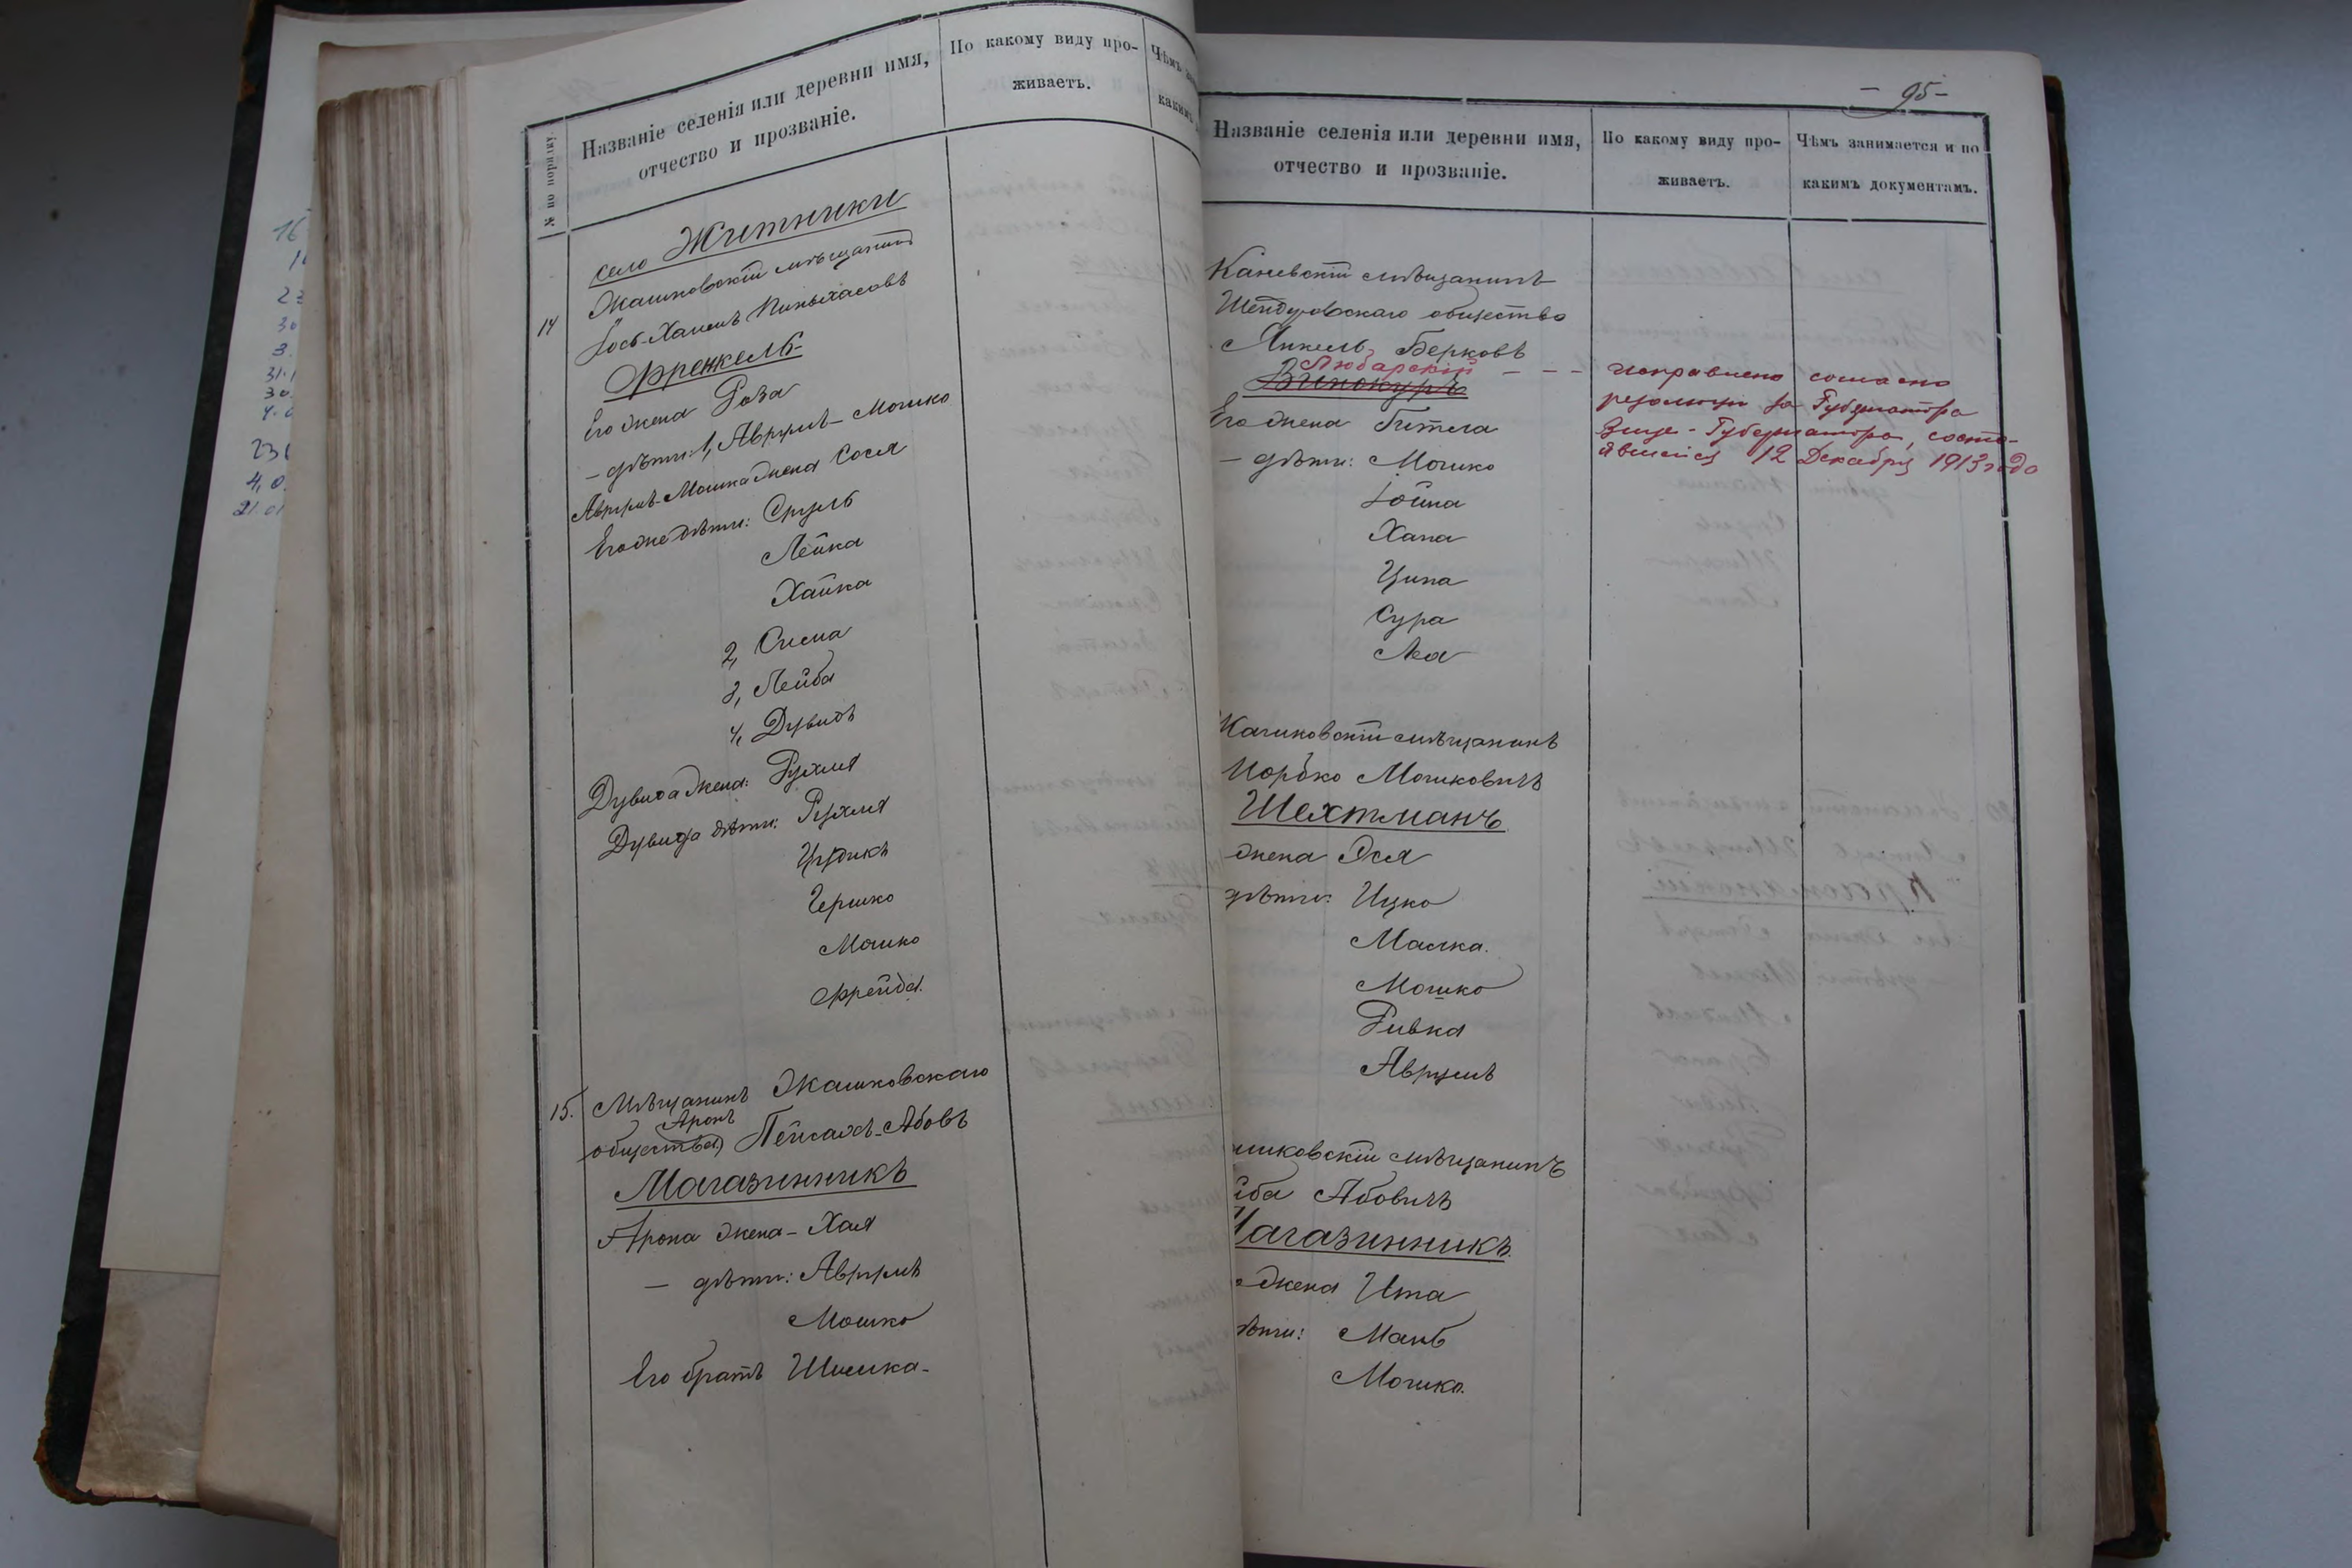 № по порядку.
Названіе селенія или деревни имя,
отчество и прозваніе.
По какому виду про-
живаетъ.
Чѣмъ
каким
село Житники
14
Жашковскій мѣщанинъ
Іось-Хаимъ Пиньхасовъ
Френкель
Его жена Роза
- дѣти: 1, Аврумъ-Мошко
Аврумъ-Мошка жена Сося
Его же дѣти: Сруль
Лейка
Хайка
2, Сисма
3, Лейба
4, Дувидъ
Дувида жена: Рухля
Дувида дѣти: Рухля
Цудикъ
Гершко
Мошко
Фрейда.
15. Мѣщанинъ Жашковскаго
Аронъ
общества) Пейсахъ-Абовъ
Магазинникъ
Арона жена - Хая
- дѣти: Аврумъ
Мошко
Его братъ Шимка -
- 95 -
Названіе селенія или деревни имя,
отчество и прозваніе.
По какому виду про-
живаетъ.
Чѣмъ занимается и по
какимъ документамъ.
Каневскій мѣщанинъ
общества
Янкель Берковъ
Любарскій - - -
Винокуръ
Его жена Гитла
- дѣти: Мошко
Іойна
Хана
Ципа
Сура
Леа
исправлено согласно
резолюціи за Губернатора
Вице-Губернатора, состо-
явшейся 12 Декабря 1913 года
Жашковскій мѣщанинъ
Іорько Мошковичъ
Шехтманъ
жена Эся
дѣти: Ицко
Малка.
Мошко
Ривка
Аврумъ
шковскій мѣщанинъ
йба Абовичъ
агазинникъ
жена Ита
ѣти: Мань
Мошко.